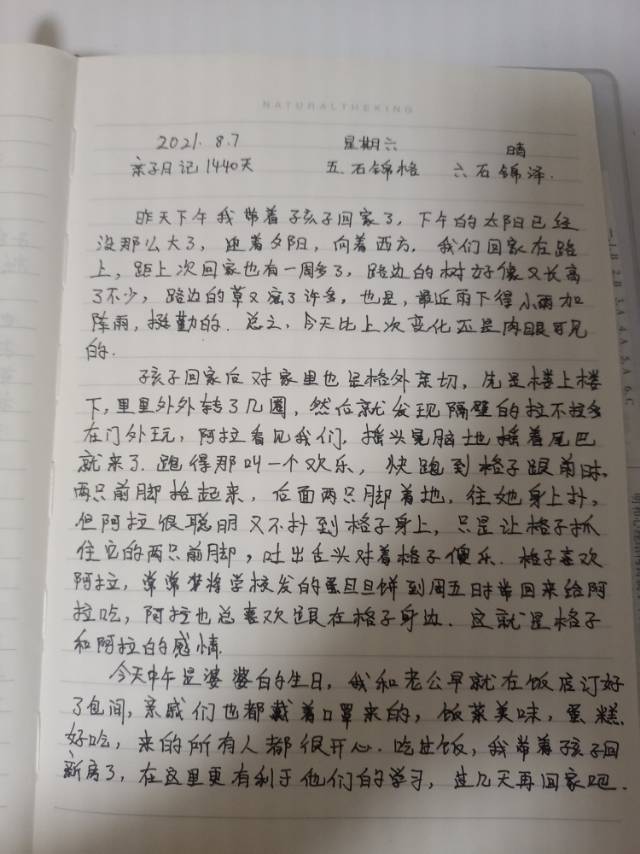 NATURALTHEKING
2021.8.7 星期六 晴
亲子日记1440天 五.石锦格 六石锦泽.
昨天下午我带着孩子回家了,下午的太阳已经
没那么大了,迎着夕阳,向着西方.我们回家在路
上,距上次回家也有一周多了,路边的树好像又长高
了不少,路边的草又密了许多,也是,最近雨下得小雨加
阵雨,挺勤的.总之,今天比上次变化还是肉眼可见
的.
孩子回家后对家里也是格外亲切,先是楼上楼
下,里里外外转了几圈,然后就发现隔壁的拉不拉多
在门外玩,阿拉看见我们,摇头晃脑地摇着尾巴
就来了.跑得那叫一个欢乐,快跑到格子跟前时,
两只前脚抬起来,后面两只脚着地,往她身上扑,
但阿拉很聪明又不扑到格子身上,只是让格子抓
住它的两只前脚,吐出舌头对着格子傻乐.格子喜欢
阿拉,常常将学校发的蛋旦旦饼到周五时带回来给阿
拉吃,阿拉也总喜欢跟在格子身边.这就是格子
和阿拉的感情.
今天中午是婆婆的生日,我和老公早就在饭店订好
了包间,亲戚们也都戴着口罩来的,饭菜美味,蛋糕
好吃,来的所有人都很开心.吃过饭,我带着孩子回
新房了,在这里更有利于他们的学习,过几天再回家吧.